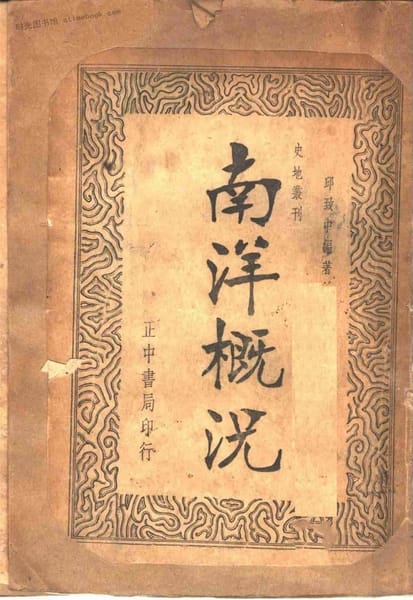 时光图书馆 atimebook.com
邱致中編著
史地叢刊
南洋概況
正中書局印行